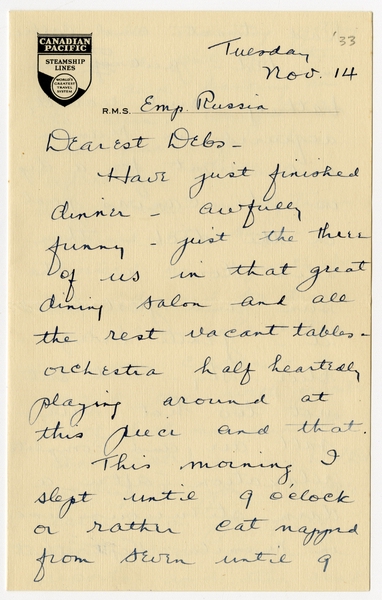 CANADIAN
PACIFIC
STEAMSHIP
LINES
WORLD'S
GREATEST
TRAVEL
SYSTEM
'33
Tuesday
Nov. 14
R.M.S. Emp. Russia
Dearest Debs -
Have just finished
dinner - awfully
funny - just the three
of us in that great
dining salon and all
the rest vacant tables -
orchestra half heartedly
playing around at
this piece and that.
This morning I
slept until 9 o'clock
or rather cat napped
from seven until 9